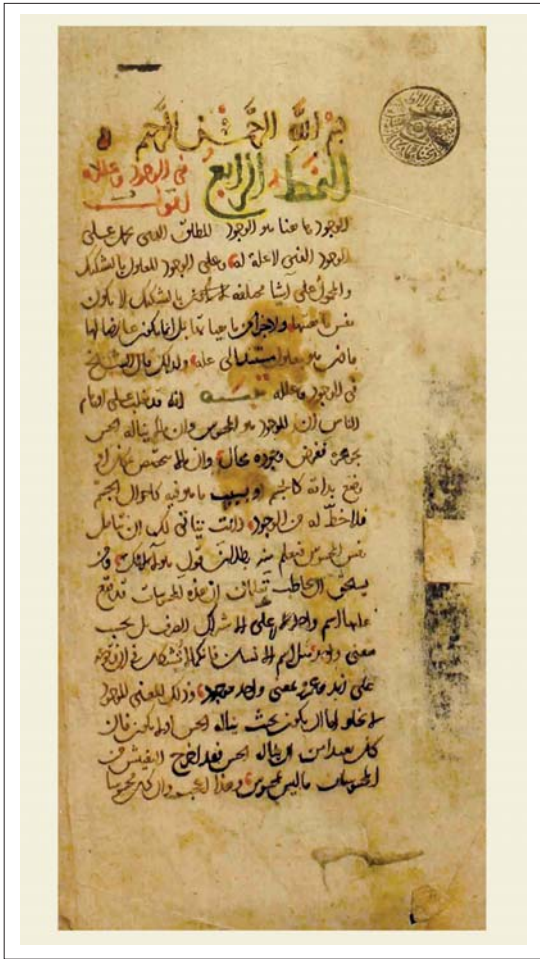 بسم الله الرحمن الرحيم
النمط الرابع في الوجود وعلله
اقول
الوجود ها هنا هو الوجود المطلق الذي يحمل على
الوجود الذي لا علة له وعلى الوجود المعلول بالتشكيك
والمحمول على أشيا مختلفة بالتشكيك لا يكون
نفس ماهيتها ولا جزأ من ماهياتها بل انما يكون عارضا لها
فاذن هو معلول مستند الى علة ولذلك قال الشيخ
في الوجود وعلله تنبيه انه قد يغلب على اوهام
الناس ان الموجود هو المحسوس وان ما لا يناله الحس
بجوهره ففرض وجوده محال وان ما لا يتخصص بمكان او
وضع بذاته كالجسم او بسبب ما هو فيه كاحوال الجسم
فلا حظ له من الوجود وانت يتأتى لك ان تتأمل
نفس المحسوس فتعلم منه بطلان قول هؤلاء لانك ومن
يستحق ان يخاطب تعلمان ان هذه المحسوسات قد يقع
عليها اسم واحد لا على الاشتراك الصرف بل بحسب
معنى واحد مثل اسم الانسان فانكما لا تشكان في ان وقوعه
على زيد وعمرو بمعنى واحد موجود فذلك المعنى الموجود
لا يخلو اما ان يكون بحيث يناله الحس او لا يكون فان
كان بعيدا من ان يناله الحس فقد اخرج التفتيش من
المحسوسات ما ليس بمحسوس وهذا اعجب وان كان محسوسا